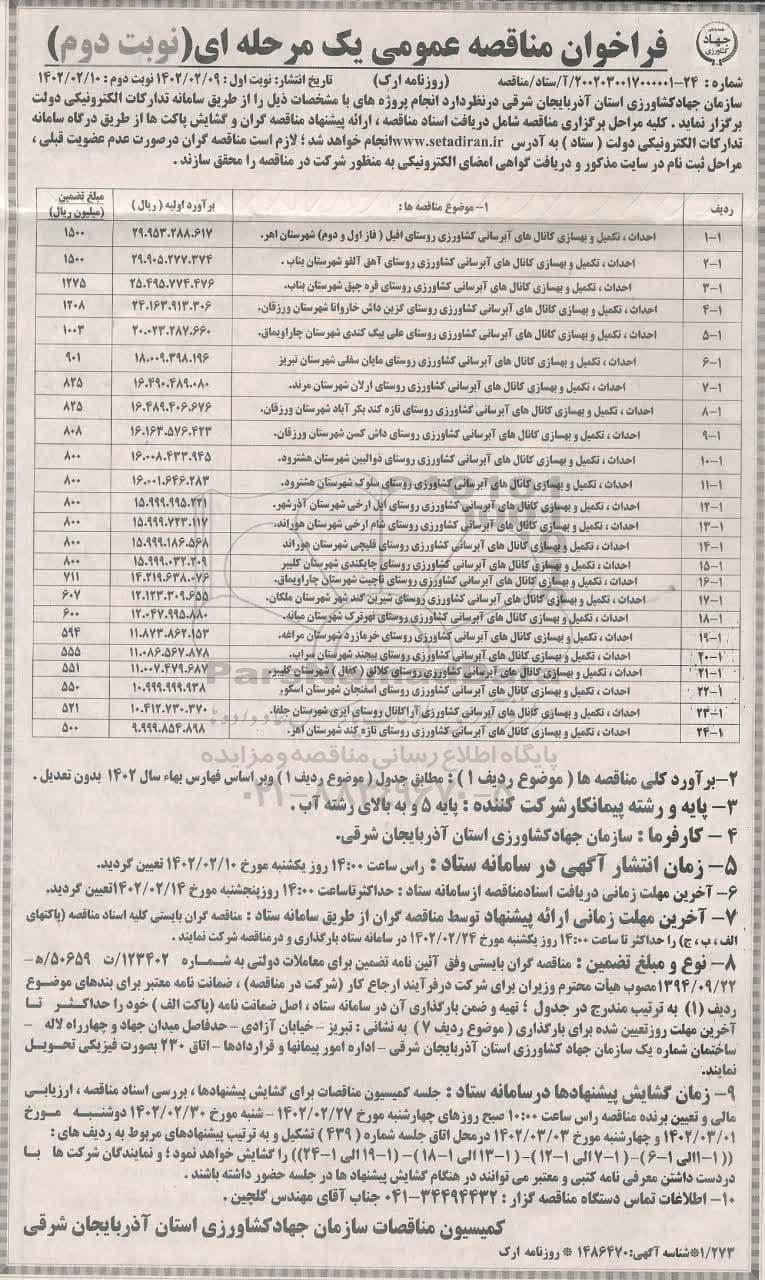 فراخوان مناقصه عمومی یک مرحله ای(نوبت دوم)
شماره : ۲۴-۲۰۰۲۰۳۰۰۱۷۰۰۰۰۰۱/آ/ستاد/مناقصه (روزنامه ارک) تاریخ انتشار: نوبت اول : ۱۴۰۲/۰۲/۰۹ نوبت دوم : ۱۴۰۲/۰۲/۱۰
سازمان جهادکشاورزی استان آذربایجان شرقی درنظردارد انجام پروژه های با مشخصات ذیل را از طریق سامانه تدارکات الکترونیکی دولت
برگزار نماید . کلیه مراحل برگزاری مناقصه شامل دریافت اسناد مناقصه ، ارائه پیشنهاد مناقصه گران و گشایش پاکت ها از طریق درگاه سامانه
تدارکات الکترونیکی دولت ( ستاد ) به آدرس www.setadiran.ir انجام خواهد شد ؛ لازم است مناقصه گران درصورت عدم عضویت قبلی ،
مراحل ثبت نام در سایت مذکور و دریافت گواهی امضای الکترونیکی به منظور شرکت در مناقصه را محقق سازند .
ردیف ۱- موضوع مناقصه ها : برآورد اولیه ( ریال ) مبلغ تضمین (میلیون ریال)
۱-۱ احداث ، تکمیل و بهسازی کانال های آبرسانی کشاورزی روستای اقبل ( فاز اول و دوم) شهرستان اهر. ۲۹.۹۵۳.۲۸۸.۶۱۷ ۱۵۰۰
۲-۱ احداث ، تکمیل و بهسازی کانال های آبرسانی کشاورزی روستای آهق آلقو شهرستان بناب . ۲۹.۹۰۵.۲۷۷.۳۷۴ ۱۵۰۰
۳-۱ احداث ، تکمیل و بهسازی کانال های آبرسانی کشاورزی روستای قره چپق شهرستان بناب. ۲۵.۴۹۵.۷۷۴.۴۷۶ ۱۲۷۵
۴-۱ احداث ، تکمیل و بهسازی کانال های آبرسانی کشاورزی روستای گزین داش خاروانا شهرستان ورزقان. ۲۴.۱۶۳.۹۱۳.۳۰۶ ۱۲۰۸
۵-۱ احداث ، تکمیل و بهسازی کانال های آبرسانی کشاورزی روستای علی بیگ کندی شهرستان چاراویماق. ۲۰.۰۲۳.۲۸۷.۶۶۰ ۱۰۰۳
۶-۱ احداث ، تکمیل و بهسازی کانال های آبرسانی کشاورزی روستای مایان سفلی شهرستان تبریز ۱۸.۰۰۹.۳۹۸.۱۹۶ ۹۰۱
۷-۱ احداث ، تکمیل و بهسازی کانال های آبرسانی کشاورزی روستای ارلان شهرستان مرند. ۱۶.۴۹۰.۴۸۹.۰۸۰ ۸۲۵
۸-۱ احداث ، تکمیل و بهسازی کانال های آبرسانی کشاورزی روستای تازه کند بکر آباد شهرستان ورزقان. ۱۶.۴۸۹.۴۰۶.۶۷۶ ۸۲۵
۹-۱ احداث ، تکمیل و بهسازی کانال های آبرسانی کشاورزی روستای داش کسن شهرستان ورزقان. ۱۶.۱۶۳.۵۷۶.۴۲۳ ۸۰۸
۱۰-۱ احداث ، تکمیل و بهسازی کانال های آبرسانی کشاورزی روستای ذوالبین شهرستان هشترود. ۱۶.۰۰۸.۴۳۳.۹۴۵ ۸۰۰
۱۱-۱ احداث ، تکمیل و بهسازی کانال های آبرسانی کشاورزی روستای سلوک شهرستان هشترود. ۱۶.۰۰۱.۶۴۶.۲۸۳ ۸۰۰
۱۲-۱ احداث ، تکمیل و بهسازی کانال های آبرسانی کشاورزی روستای ایل ارخی شهرستان آذرشهر. ۱۵.۹۹۹.۹۹۵.۲۲۱ ۸۰۰
۱۳-۱ احداث ، تکمیل و بهسازی کانال های آبرسانی کشاورزی روستای شام ارخی شهرستان هوراند. ۱۵.۹۹۹.۷۲۳.۱۱۷ ۸۰۰
۱۴-۱ احداث ، تکمیل و بهسازی کانال های آبرسانی کشاورزی روستای قلیچی شهرستان هوراند ۱۵.۹۹۹.۱۸۶.۵۶۸ ۸۰۰
۱۵-۱ احداث ، تکمیل و بهسازی کانال های آبرسانی کشاورزی روستای چایکندی شهرستان کلیبر ۱۵.۹۹۹.۰۳۲.۲۰۹ ۸۰۰
۱۶-۱ احداث ، تکمیل و بهسازی کانال های آبرسانی کشاورزی روستای تاچیت شهرستان چاراویماق. ۱۴.۲۱۹.۶۳۸.۰۷۶ ۷۱۱
۱۷-۱ احداث ، تکمیل و بهسازی کانال های آبرسانی کشاورزی روستای شیرین کند شهر شهرستان ملکان. ۱۲.۱۲۳.۳۰۹.۶۵۵ ۶۰۷
۱۸-۱ احداث ، تکمیل و بهسازی کانال های آبرسانی کشاورزی روستای نهرترک شهرستان میانه. ۱۲.۰۴۷.۹۹۵.۸۸۰ ۶۰۰
۱۹-۱ احداث ، تکمیل و بهسازی کانال های آبرسانی کشاورزی روستای خرمازرد شهرستان مراغه. ۱۱.۸۷۳.۸۶۲.۱۵۳ ۵۹۴
۲۰-۱ احداث ، تکمیل و بهسازی کانال های آبرسانی کشاورزی روستای بیجند شهرستان سراب. ۱۱.۰۸۶.۵۶۷.۸۷۸ ۵۵۵
۲۱-۱ احداث ، تکمیل و بهسازی کانال های آبرسانی کشاورزی روستای کلالق ( کفال ) شهرستان کلیبر. ۱۱.۰۰۷.۴۷۹.۶۸۷ ۵۵۱
۲۲-۱ احداث ، تکمیل و بهسازی کانال های آبرسانی کشاورزی روستای اسفنجان شهرستان اسکو. ۱۰.۹۹۹.۹۹۹.۹۳۸ ۵۵۰
۲۳-۱ احداث ، تکمیل و بهسازی کانال های آبرسانی کشاورزی آراکانال روستای ایری شهرستان جلفا. ۱۰.۴۱۲.۷۳۰.۳۷۰ ۵۲۱
۲۴-۱ احداث ، تکمیل و بهسازی کانال های آبرسانی کشاورزی روستای تازه کند شهرستان اهر. ۹.۹۹۹.۸۵۴.۸۹۸ ۵۰۰
پایگاه اطلاع رسانی مناقصه و مزایده
۲-برآورد کلی مناقصه ها ( موضوع ردیف ۱ ) : مطابق جدول ( موضوع ردیف ۱ ) وبر اساس فهارس بهاء سال ۱۴۰۲ بدون تعدیل .
۳- پایه و رشته پیمانکارشرکت کننده : پایه ۵ و به بالای رشته آب .
۴ - کارفرما : سازمان جهادکشاورزی استان آذربایجان شرقی.
۵- زمان انتشار آگهی در سامانه ستاد : راس ساعت ۱۴:۰۰ روز یکشنبه مورخ ۱۴۰۲/۰۲/۱۰ تعیین گردید.
۶- آخرین مهلت زمانی دریافت اسنادمناقصه ازسامانه ستاد : حداکثرتاساعت ۱۴:۰۰ روزپنجشنبه مورخ ۱۴۰۲/۰۲/۱۴تعیین گردید.
۷- آخرین مهلت زمانی ارائه پیشنهاد توسط مناقصه گران از طریق سامانه ستاد : مناقصه گران بایستی کلیه اسناد مناقصه (پاکتهای
الف ، ب ، ج) را حداکثر تا ساعت ۱۴:۰۰ روز یکشنبه مورخ ۱۴۰۲/۰۲/۲۴ در سامانه ستاد بارگذاری و درمناقصه شرکت نمایند .
۸- نوع و مبلغ تضمین : مناقصه گران بایستی وفق آئین نامه تضمین برای معاملات دولتی به شماره ۱۲۳۴۰۲/ت ۵۰۶۵۹/ه-
۱۳۹۴/۰۹/۲۲مصوب هیأت محترم وزیران برای شرکت درفرآیند ارجاع کار (شرکت در مناقصه) ، ضمانت نامه معتبر برای بندهای موضوع
ردیف (۱) به ترتیب مندرج در جدول ؛ تهیه و ضمن بارگذاری آن در سامانه ستاد ، اصل ضمانت نامه (پاکت الف ) خود را حداکثر تا
آخرین مهلت روزتعیین شده برای بارگذاری ( موضوع ردیف ۷ ) به نشانی : تبریز - خیابان آزادی - حدفاصل میدان جهاد و چهارراه لاله -
ساختمان شماره یک سازمان جهاد کشاورزی استان آذربایجان شرقی - اداره امور پیمانها و قراردادها - اتاق ۲۳۰ بصورت فیزیکی تحویل
نمایند.
۹- زمان گشایش پیشنهادها درسامانه ستاد : جلسه کمیسیون مناقصات برای گشایش پیشنهادها ، بررسی اسناد مناقصه ، ارزیابی
مالی و تعیین برنده مناقصه راس ساعت ۱۰:۰۰ صبح روزهای چهارشنبه مورخ ۱۴۰۲/۰۲/۲۷ - شنبه مورخ ۱۴۰۲/۰۲/۳۰ دوشنبه مورخ
۱۴۰۲/۰۳/۰۱ و چهارشنبه مورخ ۱۴۰۲/۰۳/۰۳ درمحل اتاق جلسه شماره ( ۴۳۹ ) تشکیل و به ترتیب پیشنهادهای مربوط به ردیف های :
(( ۱-۱الی ۱-۶) - ( ۱-۷ الی ۱-۱۲) - ( ۱-۱۳ الی ۱-۱۸) - (۱-۱۹ الی ۱-۲۴)) را گشایش خواهد نمود ؛ و نمایندگان شرکت ها با
دردست داشتن معرفی نامه کتبی و معتبر می توانند در هنگام گشایش پیشنهاد ها در جلسه حضور داشته باشند .
۱۰- اطلاعات تماس دستگاه مناقصه گزار : ۳۴۴۹۴۴۳۲-۰۴۱ جناب آقای مهندس گلچین .
کمیسیون مناقصات سازمان جهادکشاورزی استان آذربایجان شرقی
۱/۲۷۳*شناسه آگهی:۱۴۸۶۴۷۰ * روزنامه ارک